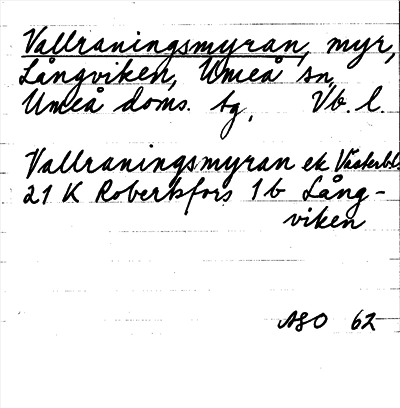 Vallraningsmyran, myr,
Långviken, Umeå sn,
Umeå doms. tg, Vb. l.
Vallraningsmyran ek Västerbl.
21 K Robertsfors 1 b Lång-
viken
ASO 62